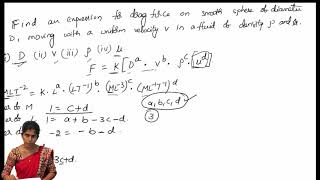 Find an expression for drag force on smooth sphere of diameter
D, moving with a uniform velocity v in a fluid of density ρ and
D (ii) v (iii) ρ (iv) μ
F = K [D^a · v^b · ρ^c · μ^d]
MLT^-2 = K · L^a · (LT^-1)^b · (ML^-3)^c · (ML^-1T^-1)^d
M 1 = c+d
L 1 = a+b-3c-d
-2 = -b-d
a, b, c, d
3
3c+d